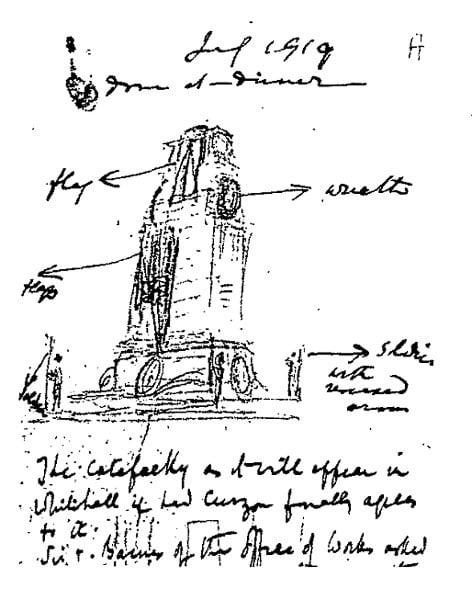 July 1919
A
done at dinner
flag
wreath
flags
Soldier
with
reversed
arms
The Catafalque as it will appear in
Whitehall if Lord Curzon finally agrees
to it.
Sir F. Baines of the Office of Works asked